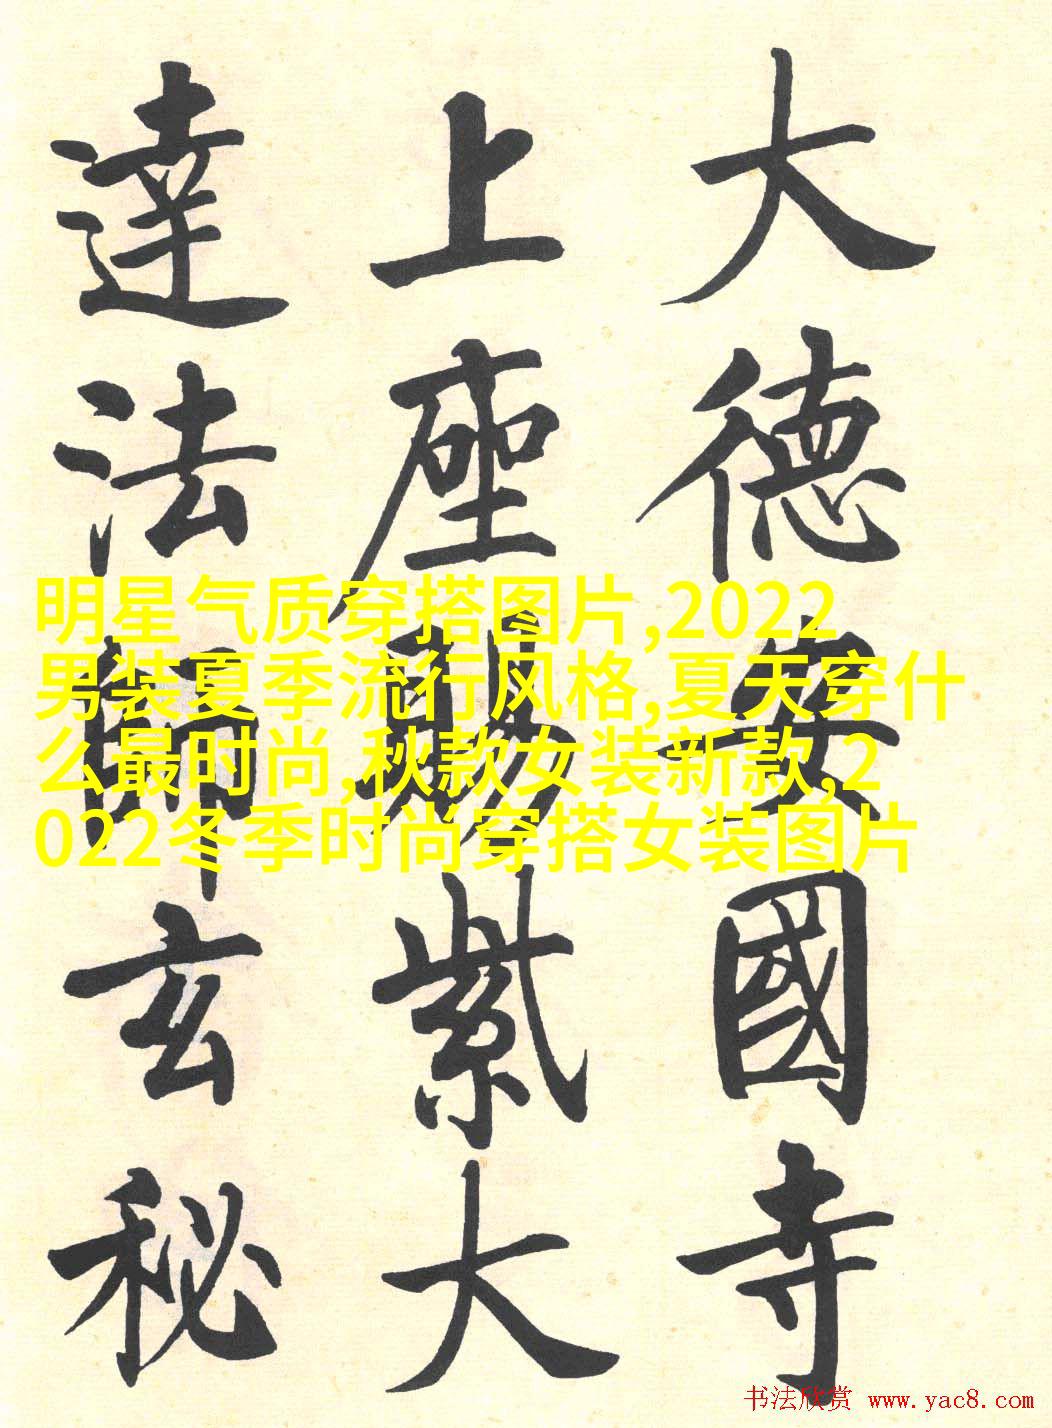 大德安國寺
上座賜紫大
達法師玄秘
明星气质穿搭图片,2022
男装夏季流行风格,夏天穿什
么最时尚,秋款女装新款,2
022冬季时尚穿搭女装图片
书法欣赏 www.yac8.com